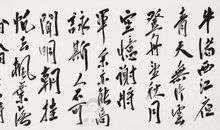 牛渚西江夜
青天無片雲
登舟望秋月
空憶謝將
軍余亦能高
詠斯人不可
聞明朝挂
帆去楓葉落